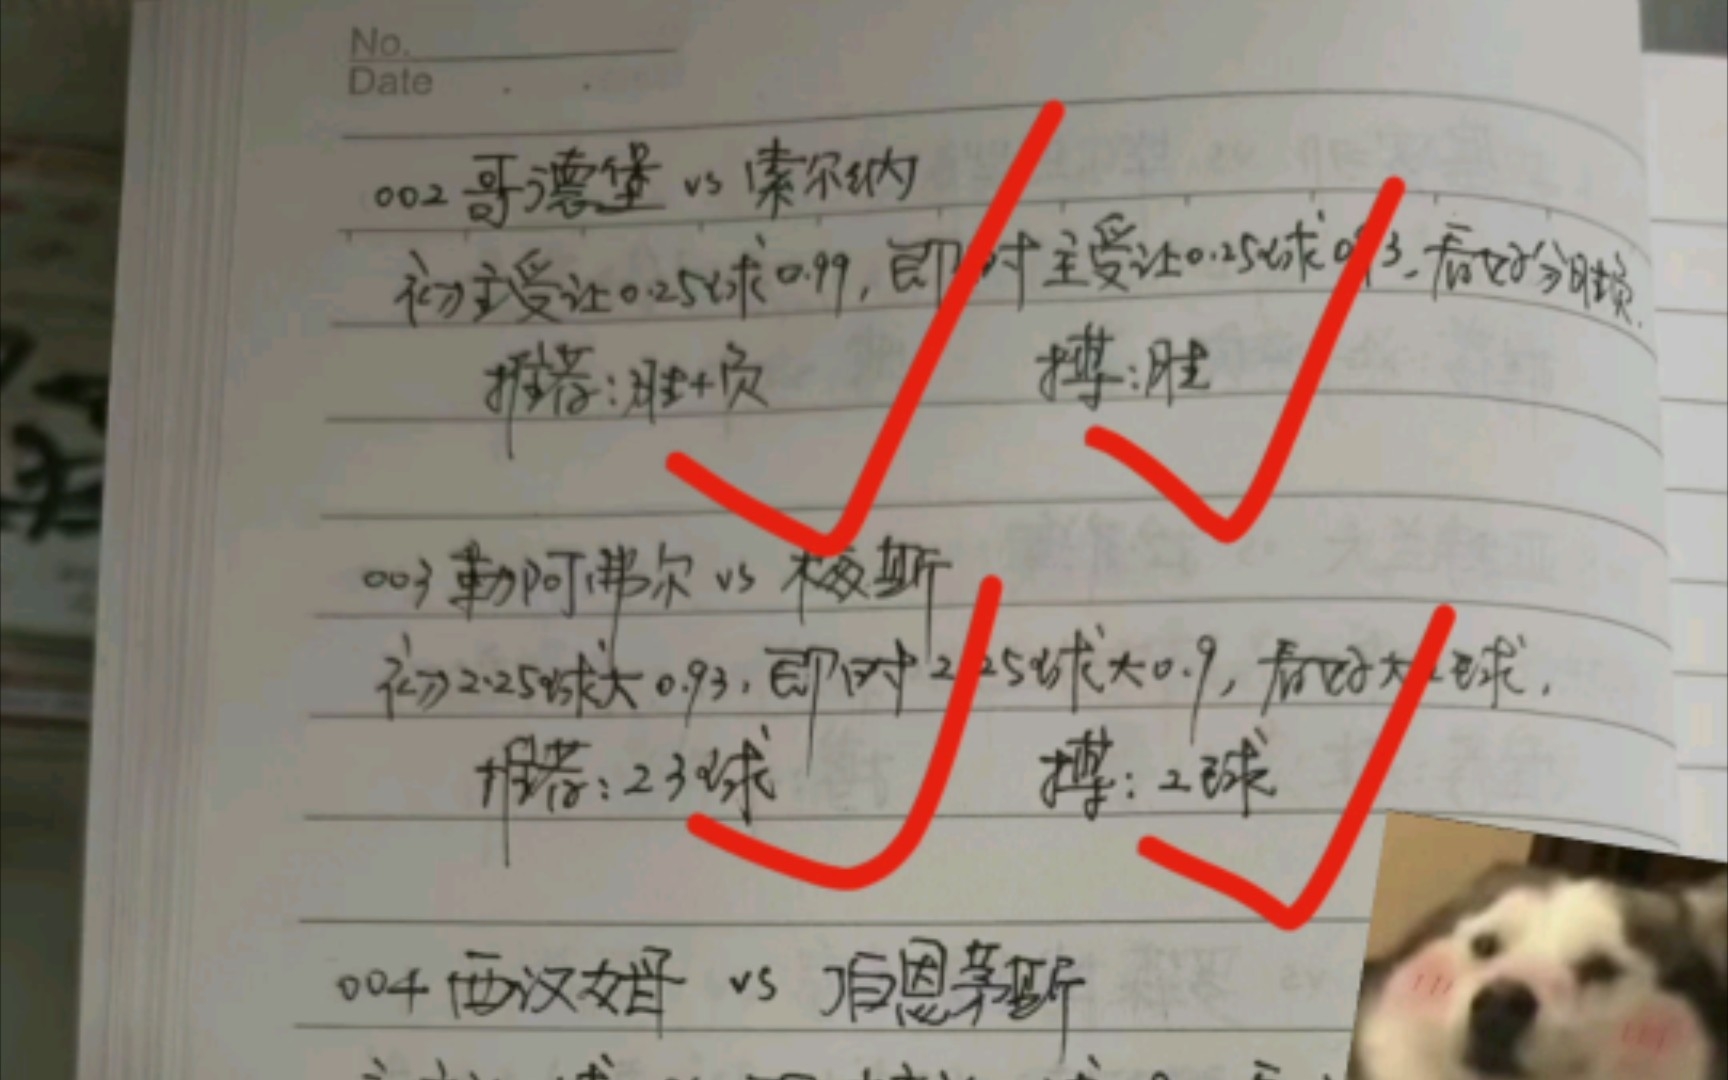 No.
Date
002 哥德堡 vs 索尔纳
初主受让0.25球0.99, 即时主受让0.25球0.93, 看好分胜负.
推荐:胜+负 搏:胜
003 勒阿弗尔 vs 梅斯
初2.25球大0.93, 即时2.25球大0.9, 看好大2球.
推荐:23球 搏:2球
004 西汉姆 vs 伯恩茅斯